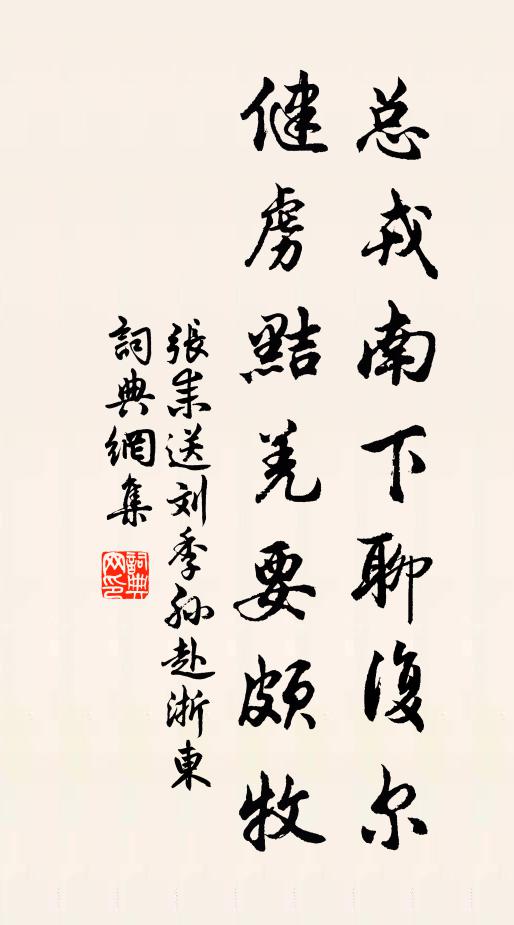 总戎南下聊復尔
健虏黠羌要頗牧
張耒送刘季孙赴浙東
詞典網集
詞典網印